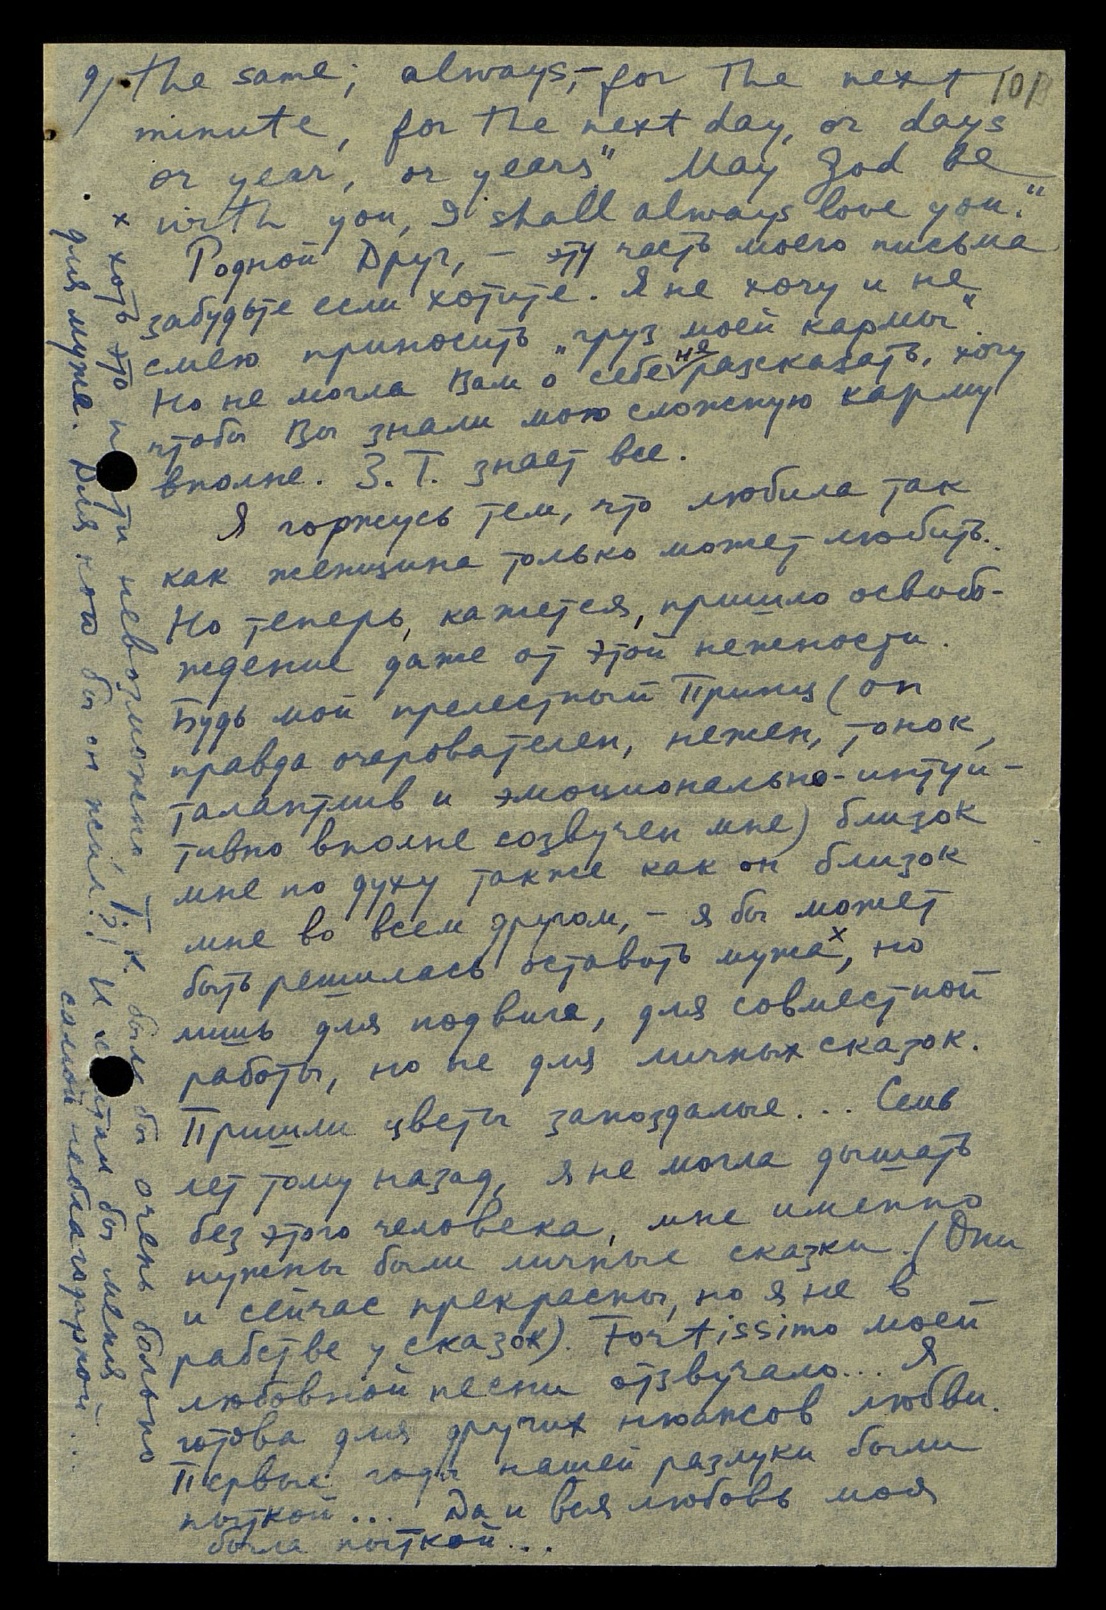 9/ the same; always, – for the next
minute, for the next day, or days
or year, or years" May God be
with you, I shall always love you."
Родной Друг, – эту часть моего письма
забудьте если хотите. Я не хочу и не
смею приносить „груз моей кармы".
Но не могла Вам о себе не разсказать, хочу
чтобы Вы знали мою сложную карму
вполне. З. Т. знает все.
Я горжусь тем, что любила так
как женщина только может любить.
Но теперь, кажется, пришло освобо-
ждение даже от этой нежности.
Будь мой прелестный Принц (он
правда очарователен, нежен, тонок,
талантлив и эмоционально-интуи-
тивно вполне созвучен мне) близок
мне по духу также как он близок
мне во всем другом, – я бы может
быть решилась оставить мужа x, но
лишь для подвига, для совместной
работы, но не для личных сказок.
Пришли цветы запоздалые... Семь
лет тому назад, я не могла дышать
без этого человека, мне именно
нужны были личные сказки. (Они
и сейчас прекрасны, но я не в
рабстве у сказок). Fortissimo моей
любовной песни отзвучало... Я
готова для других нюансов любви.
Первые годы нашей разлуки были
пыткой... Да и вся любовь моя
была пыткой...
x хоть это почти невозможно т. к. было бы очень больно
для мужа. Для кого бы он жил?! И считал бы меня
самой неблагодарной...
10